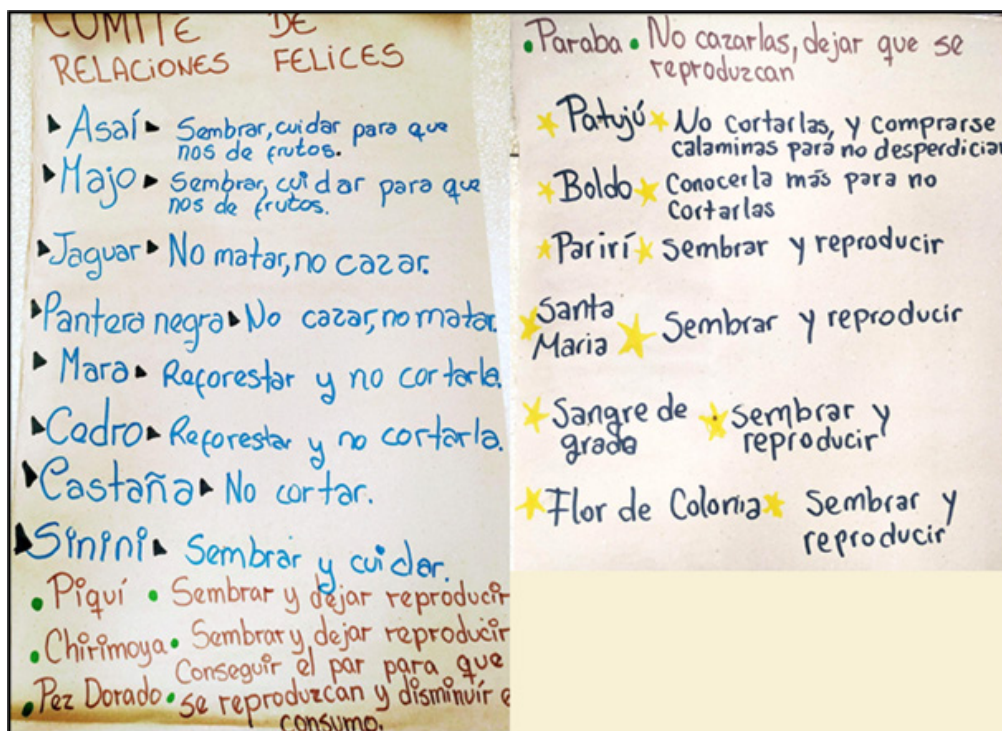 COMITE DE
RELACIONES FELICES
Asaí Sembrar, cuidar para que
nos de frutos.
Majo Sembrar, cuidar para que
nos de frutos.
Jaguar No matar, no cazar.
Pantera negra No cazar, no matar.
Mara Reforestar y no cortarla.
Cedro Reforestar y no cortarla.
Castaña No cortar.
Sinini Sembrar y cuidar.
Piquí Sembrar y dejar reproducir
Chirimoya Sembrar y dejar reproducir
Conseguir el par para que
Pez Dorado se reproduzcan y disminuír e
consumo.
Paraba No cazarlas, dejar que se
reproduzcan
Patujú No cortarlas, y comprarse
calaminas para no desperdiciar
Boldo Conocerla más para no
cortarlas
Parirí Sembrar y reproducir
Santa
Maria Sembrar y reproducir
Sangre de Sembrar y
grada reproducir
Flor de Colonia Sembrar y
reproducir